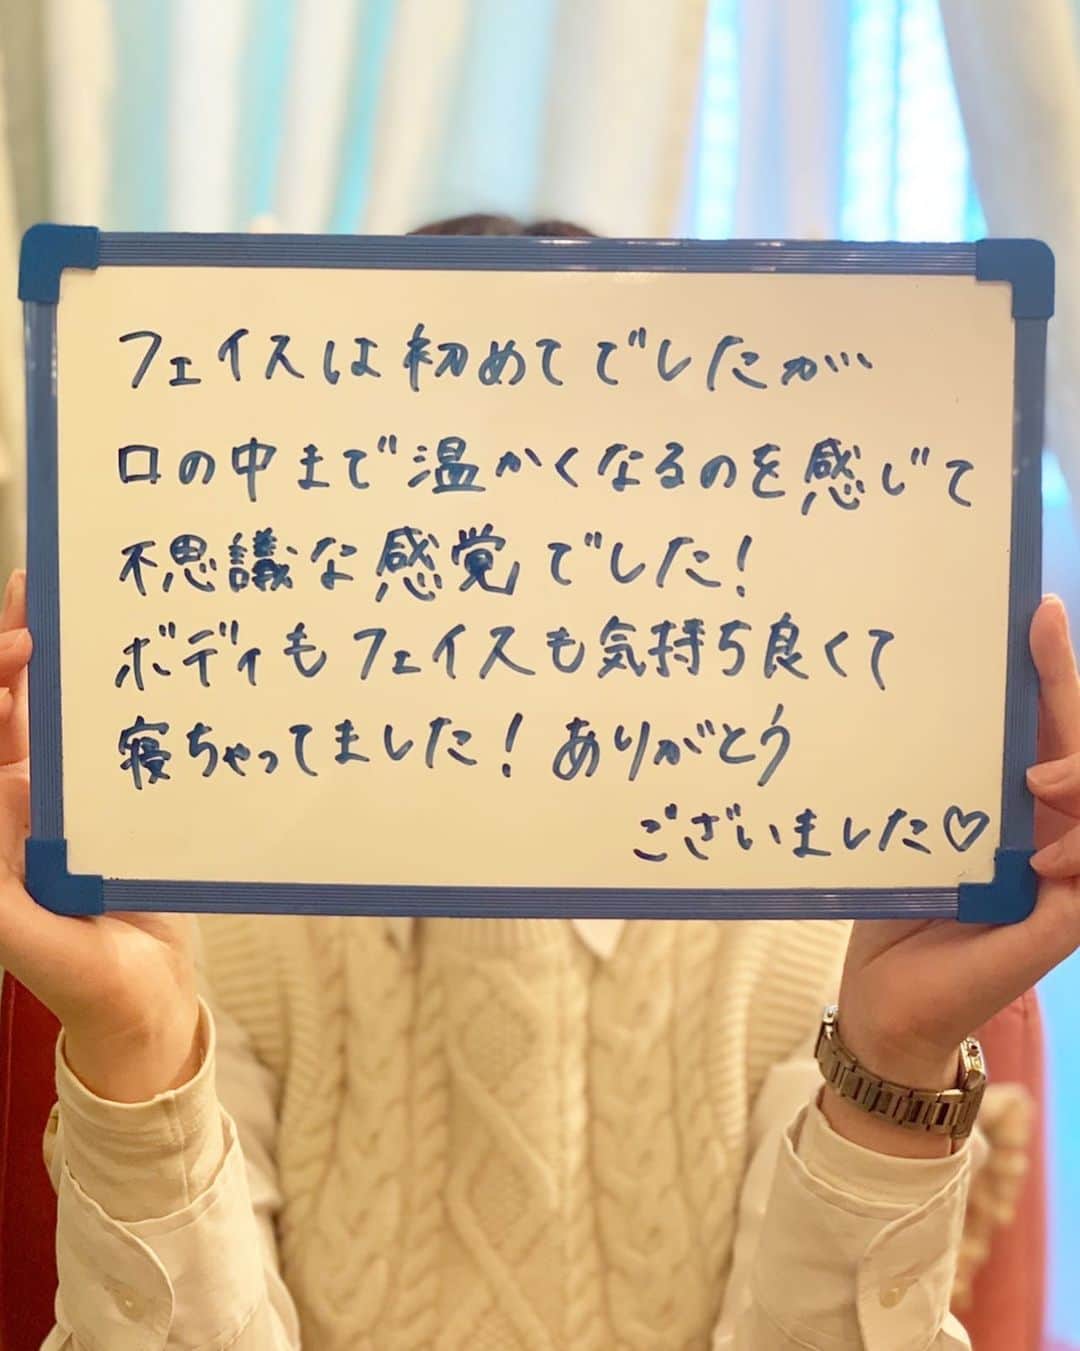 フェイスは初めてでしたが
口の中まで温かくなるのを感じて
不思議な感覚でした!
ボディもフェイスも気持ち良くて
寝ちゃってました!ありがとう
ございました♡